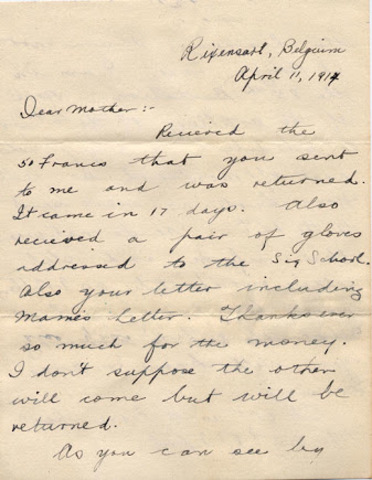 Rixensart, Belgium
April 11, 1919
Dear Mother:-
Recieved the
50 Francs that you sent
to me and was returned.
It came in 17 days. Also
recieved a pair of gloves
addressed to the Sig School.
Also your letter including
Mame's Letter. Thanks ever
so much for the money.
I don't suppose the other
will come but will be
returned.
As you can see by